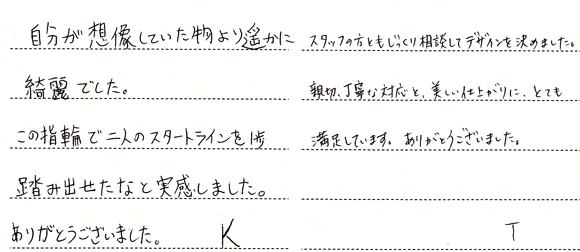 自分が想像していた物より遥かに
綺麗でした。
この指輪で二人のスタートラインを1歩
踏み出せたなと実感しました。
ありがとうございました。 K
スタッフの方ともじっくり相談してデザインを決めました。
親切、丁寧な対応と、美しい仕上がりに、とても
満足しています。ありがとうございました。
T